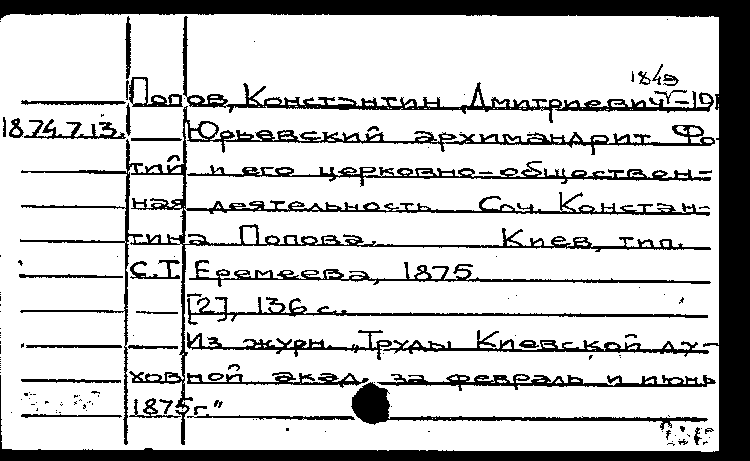 1849
Попов, Константин Дмитриевич
1874.7.13. Юрьевский архимандрит Фо-
тий и его церковно-обществен-
ная деятельность. Соч. Констан-
тина Попова. Киев, тип.
С.Т. Еремеева, 1875.
[2], 136 с.
Из журн. „Труды Киевской ду-
ховной акад. за февраль и июнь
1875г."